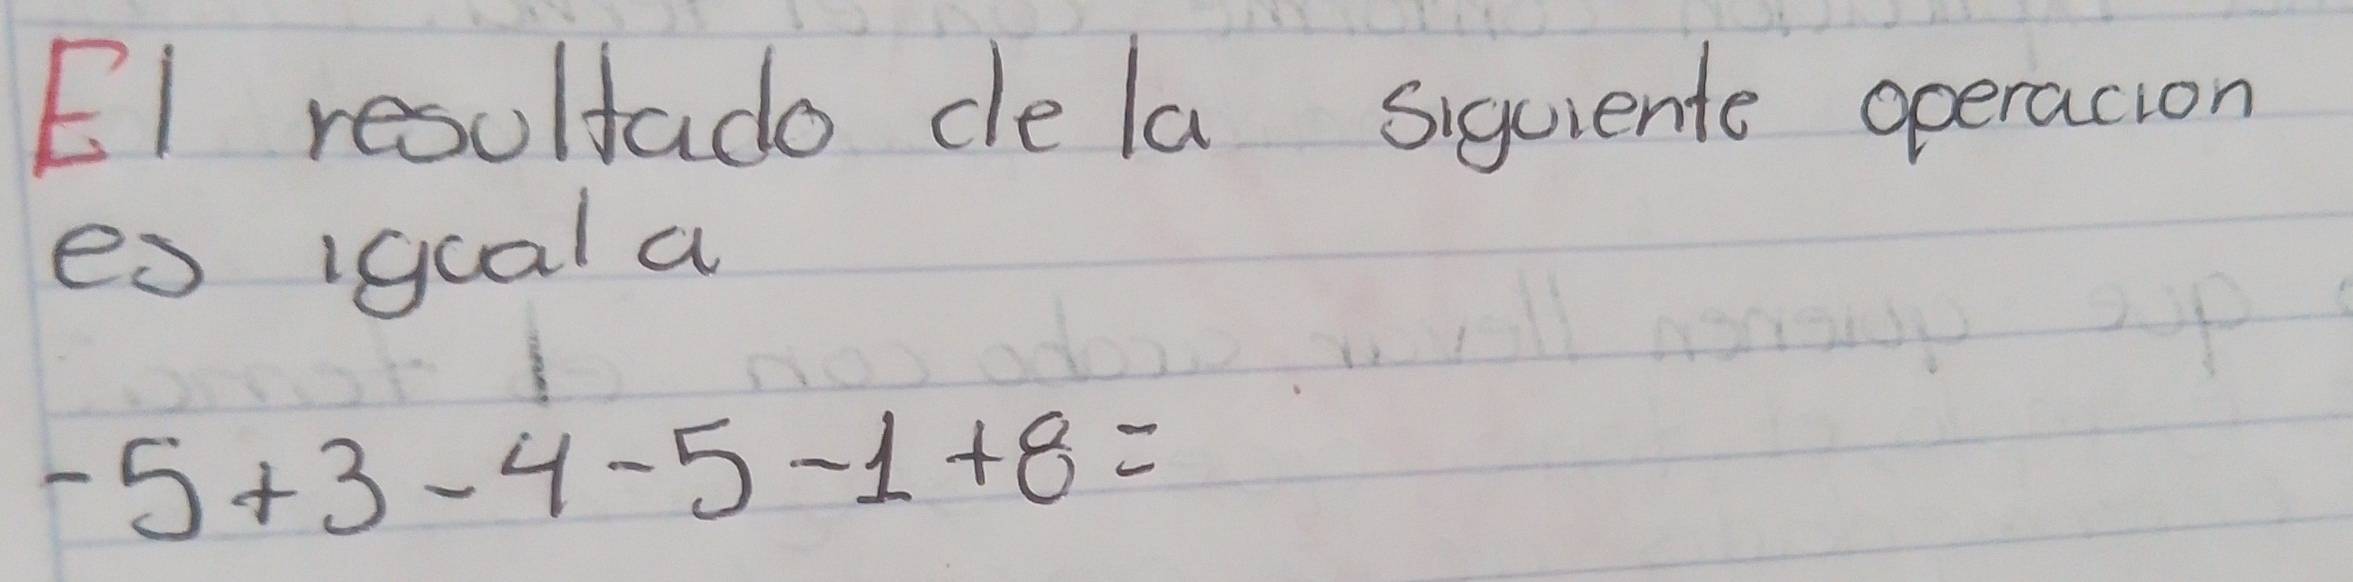 El resultado de la siguiente operacion
es igual a
-5+3-4-5-1+8=